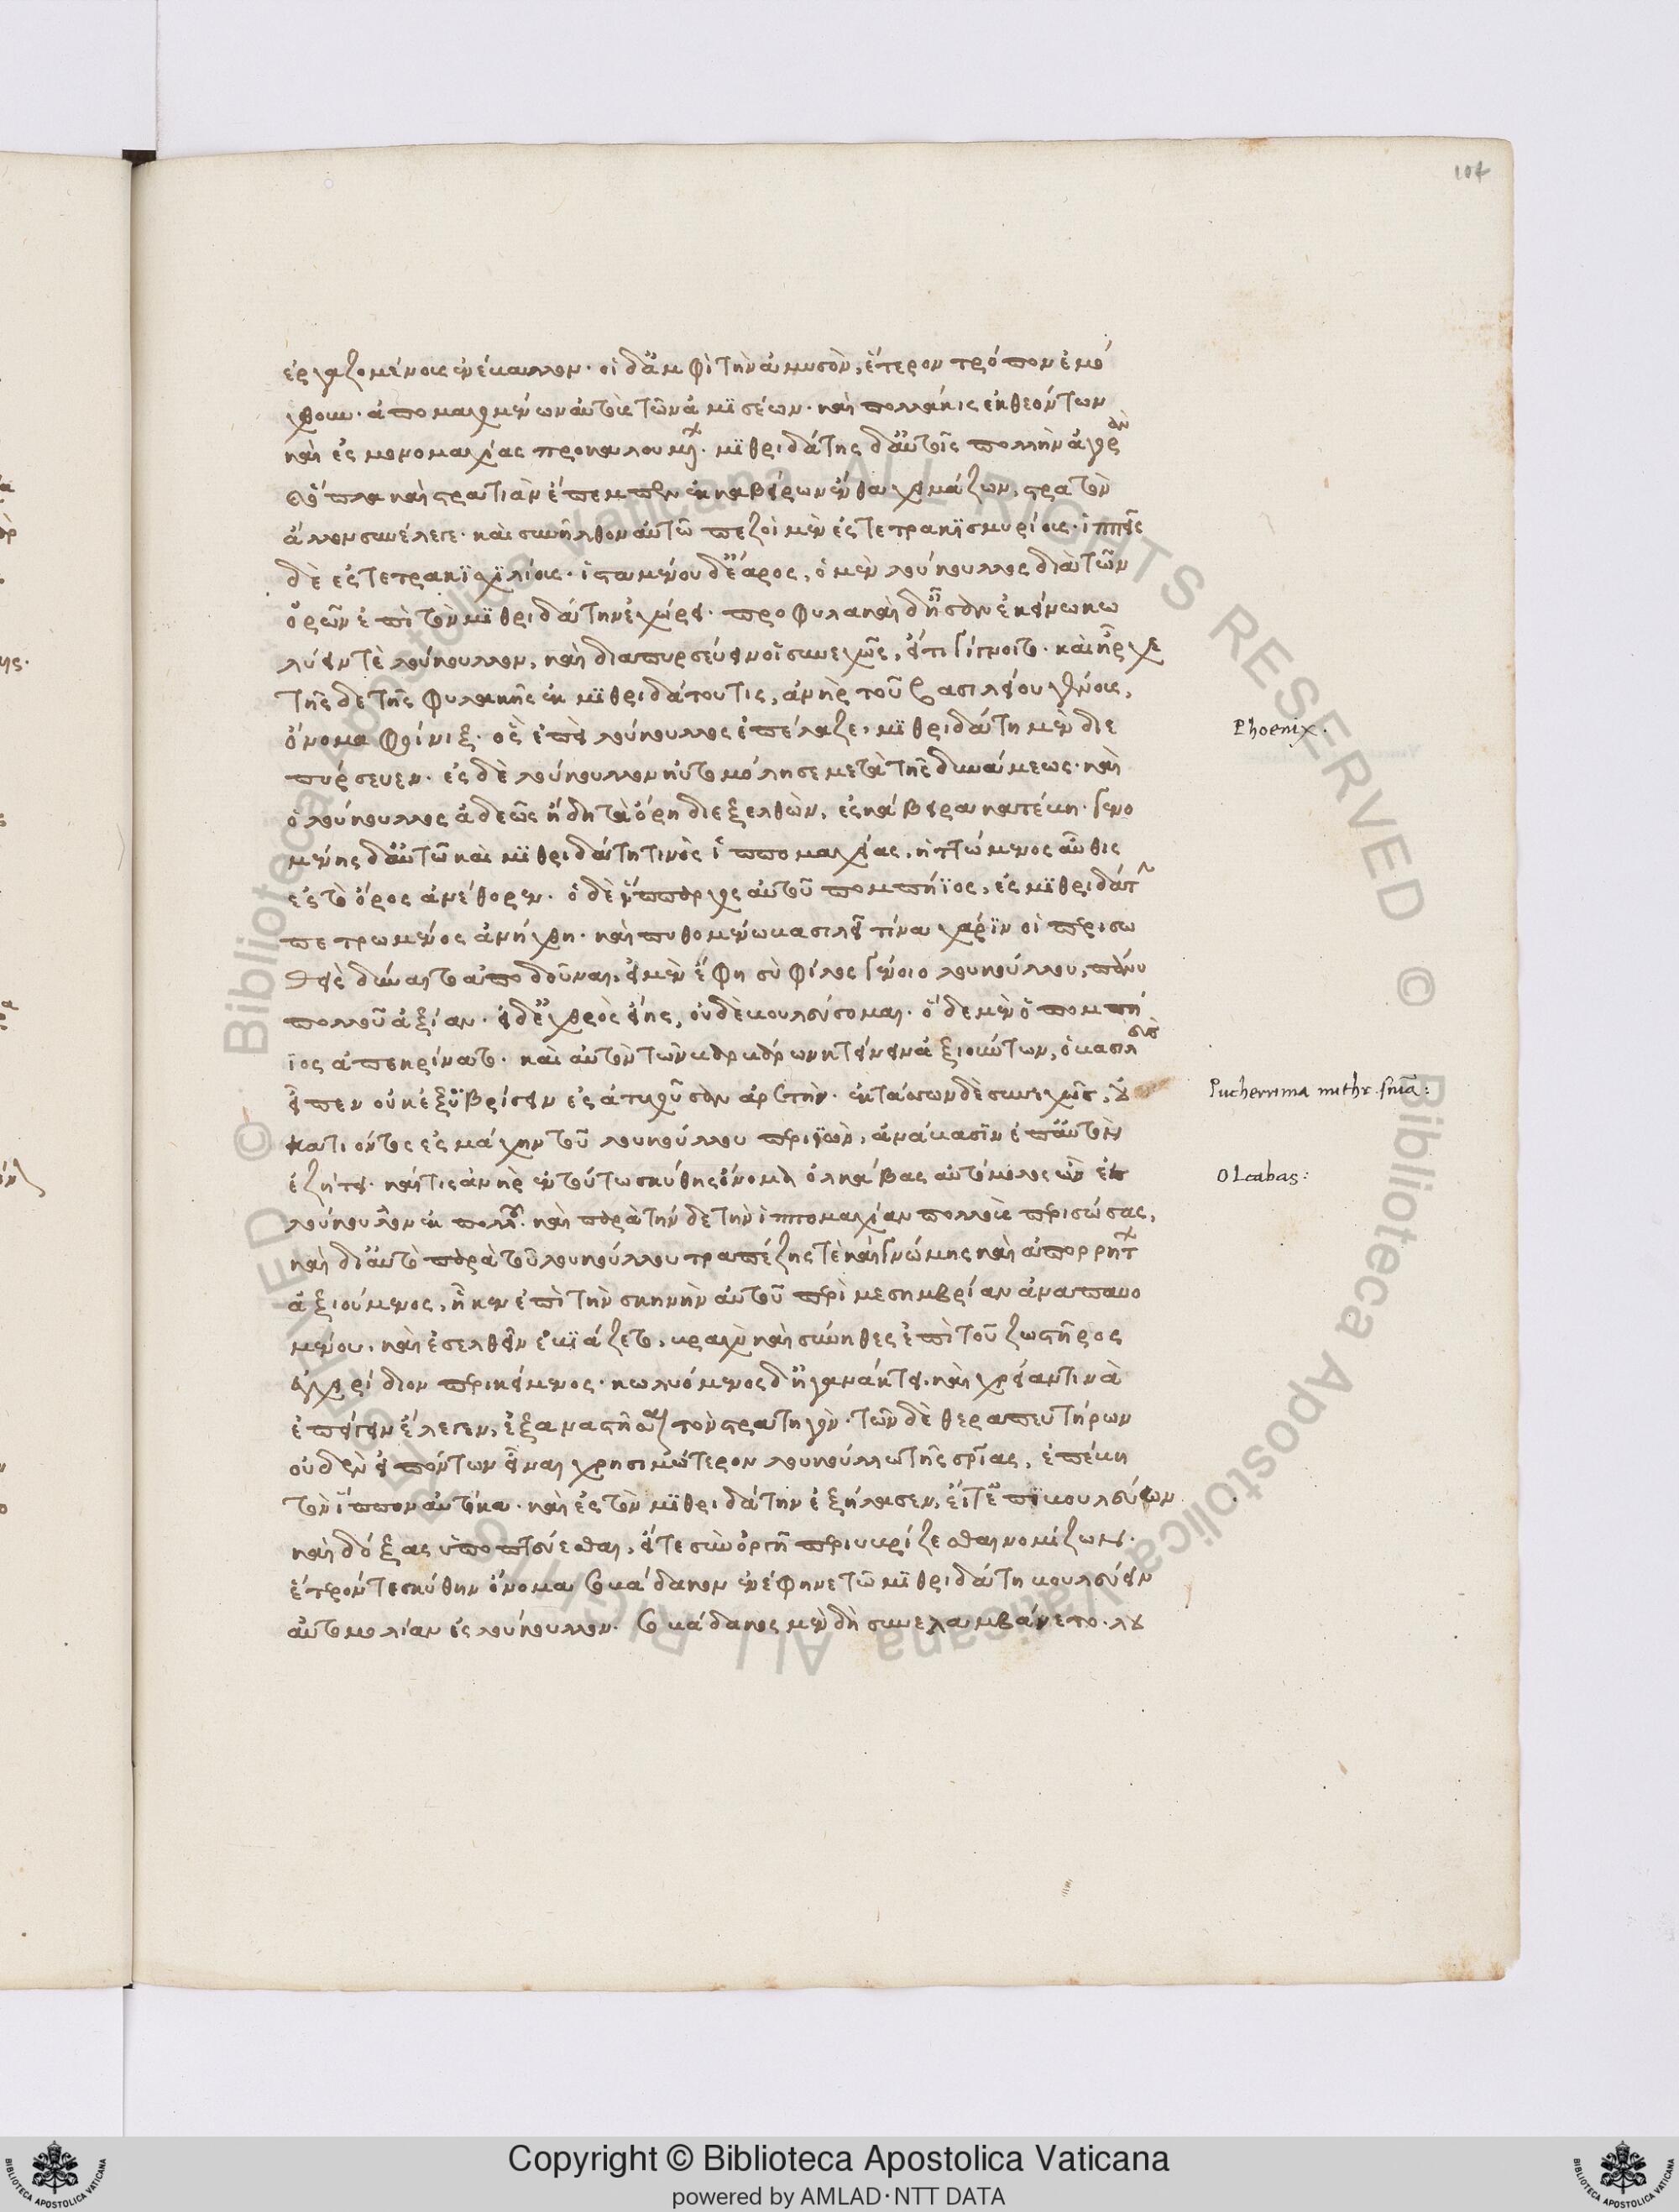 104
ἐργαζομένοις ἐνέκαμνον. οἱ δ' ἀμφὶ τὴν ἀμισὸν, ἕτερον τρόπον ἐμό
χθουν. ἀπομαχομένων αὐτοῖς τῶν ἀμϊσέων. καὶ πολλάκις ἐκθεόντων
καὶ ἐς μονομαχίας προκαλουμένων. μϊθριδάτης δ' αὐτοῖς πολλὴν ἀγορὰν
καὶ στρατιὰν ἔπεμπεν ἐκ καβείρων ἔνθα χειμάζων, στρατὸν
ἄλλον συνέλεγε. καὶ συνῆλθον αὐτῶ πεζοὶ μὲν ἐς τετρακϊσμυρίους. ἱππεῖς
δὲ ἐς τετρακϊχϊλίους. ἱσταμένου δ' ἔαρος, ὁ μὲν λούκουλλος διὰ τῶν
ὀρῶν ἐπὶ τὸν μϊθριδάτην ἐχώρει. προφυλακαὶ δ' ἦσαν ἐκείνω κω
λύειν τὲ λούκουλλον, καὶ διαπυρσεύειν οἷ συνεχῶς, εἴ τι γίγνοιτο. καὶ ἦρχε
τῆς δε τῆς φυλακῆς ἐκ μϊθριδάτου τις, ἀνὴρ τοῦ βασιλείου γένους,
ὄνομα φοίνιξ. ὃς ἐπεὶ λούκουλλος ἐπέλαζε, μϊθριδάτη μὲν διε
πύρσευεν. ἐς δὲ λούκουλλον ηὐτομόλησε μετὰ τῆς δυνάμεως. καὶ
ὁ λούκουλλος ἀδεῶς ἤδη τὰ ὄρη διεξελθὼν, ἐς κάβειρα κατέβη. γενο
μένης δ' αὐτῶ καὶ μϊθριδάτη τινὸς ἱππομαχίας, ἡττώμενος αὖθις
ἐς τὸ ὄρος ἀνέθορεν. ὁ δὲ ἵππαρχος αὐτοῦ πομπήϊος, ἐς μϊθριδάτην
τετρωμένος ἀνήχθη. καὶ πυθομένω βασιλεῖ τίνα χάρϊν οἱ περισω
θεὶς δύναιτο ἀποδοῦναι, εἰ μὲν ἔφη σὺ φίλος γένοιο λουκούλλου, πάνυ
πολλοῦ ἀξίαν. εἰ δ' ἐχθρὸς εἴης, οὐδὲ βουλεύσομαι. ὅδε μὲν ὁ πομπή
ϊος ἀπεκρίνατο. καὶ αὐτὸν τῶν βαρβάρων κτείνειν ἀξιούντων, ὁ βασιλεὺς
εἶπεν οὐκ ἐξϋβρίσειν ἐς ἀτυχοῦσαν ἀρετὴν. ἐκτάσσων δὲ συνεχῶς, οὐ
κατιόντος ἐς μάχην τοῦ λουκούλλου περιϊὼν, ἀνάβασϊν ἐπ' αὐτὸν
ἐζήτει. καί τις ἀνὴρ ἐν τούτω σκύθης ὄνομα ὀλκάβας αὐτόμολος ὢν ἐς
λούκουλλον ἐκ πολλοῦ. καὶ παρὰ τήνδε τὴν ἱππομαχίαν πολλοὺς περισώσας,
καὶ δι' αὐτὸ παρὰ τοῦ λουκούλλου τραπέζης τὲ καὶ γνώμης καὶ ἀπορρήτων
ἀξιούμενος, ἧκεν ἐπὶ τὴν σκηνὴν αὐτοῦ περὶ μεσημβρίαν ἀναπαυο
μένου, καὶ ἐσελθεῖν ἐβϊάζετο, βραχὺ καὶ σύνηθες ἐπὶ τοῦ ζωστῆρος
ἐγχειρίδιον περικείμενος. κωλυόμενος δ' ἠγανάκτει. καὶ χρείαν τινὰ
ἐπείγειν ἔλεγεν, ἐξαναστῆσαι τὸν στρατηγὸν. τῶν δὲ θεραπευτήρων
οὐδὲν εἰπόντων εἶναι χρησιμώτερον λουκούλλω τῆς σωτηρίας, ἐπέβη
τὸν ἵππον αὐτίκα. καὶ ἐς τὸν μϊθριδάτην ἐξήλασεν, εἴτ' ἐπϊβουλεύων
καὶ δόξας ὑποπτεύεσθαι, εἴτε σὺν ὀργῆ περιυβρίζεσθαι νομίζων.
ἕτερόν τε σκύθην ὄνομα σοβάδακον ἐνέφηνε τῶ μϊθριδάτη βουλεύειν
αὐτομολίαν ἐς λούκουλλον. σοβάδακος μὲν δὴ συνελαμβάνετο. λου
Phoenix.
Pucherrima mithr. snīa:
Olcabas:
Copyright © Biblioteca Apostolica Vaticana
powered by AMLAD·NTT DATA